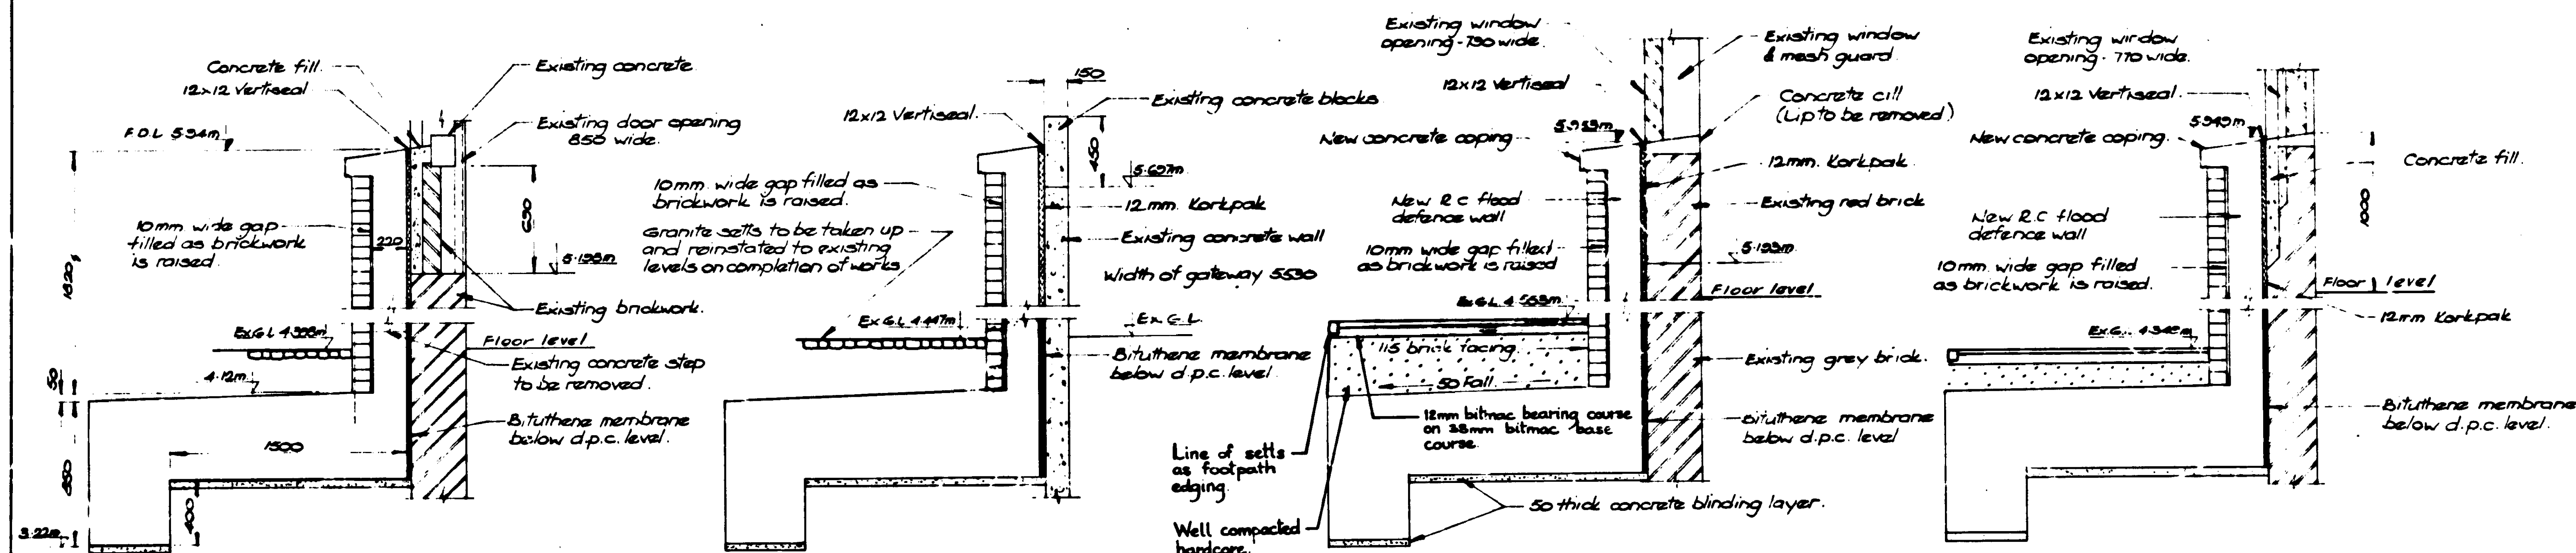 Concrete fill.
12x12 Vertiseal
F.D.L 5.94m
Existing concrete
Existing door opening
850 wide.
10mm wide gap
filled as brickwork
is raised.
220
690
5.195m
1820
Existing brickwork.
Floor level
Existing concrete step
to be removed.
4.12m
50
850
1500
400
3.22m
Bituthene membrane
below d.p.c. level.
150
12x12 Vertiseal.
Existing concrete blocks
450
5.697m
10mm. wide gap filled as
brickwork is raised.
12mm. Korkpak
Granite setts to be taken up
and reinstated to existing
levels on completion of works
Existing concrete wall
Width of gateway 5530
Ex.G.L 4.447m
Ex.G.L.
Bituthene membrane
below d.p.c. level.
Existing window
opening - 790 wide.
Existing window
& mesh guard.
12x12 Vertiseal
Concrete cill
(Lip to be removed)
5.959m
New concrete coping
12mm. Korkpak
New R.C flood
defence wall
Existing red brick
10mm wide gap filled
as brickwork is raised
5.199m
Floor level
115 brick facing.
Existing grey brick.
50 Fall
12mm bitmac bearing course
on 38mm bitmac base
course.
Bituthene membrane
below d.p.c. level
Line of setts
as footpath
edging.
50 thick concrete blinding layer.
Well compacted
hardcore.
Existing window
opening - 770 wide.
12x12 Vertiseal.
5.949m
New concrete coping.
Concrete fill.
1000
New R.C flood
defence wall
10mm. wide gap filled
as brickwork is raised.
Floor level
12mm Korkpak
Bituthene membrane
below d.p.c. level.